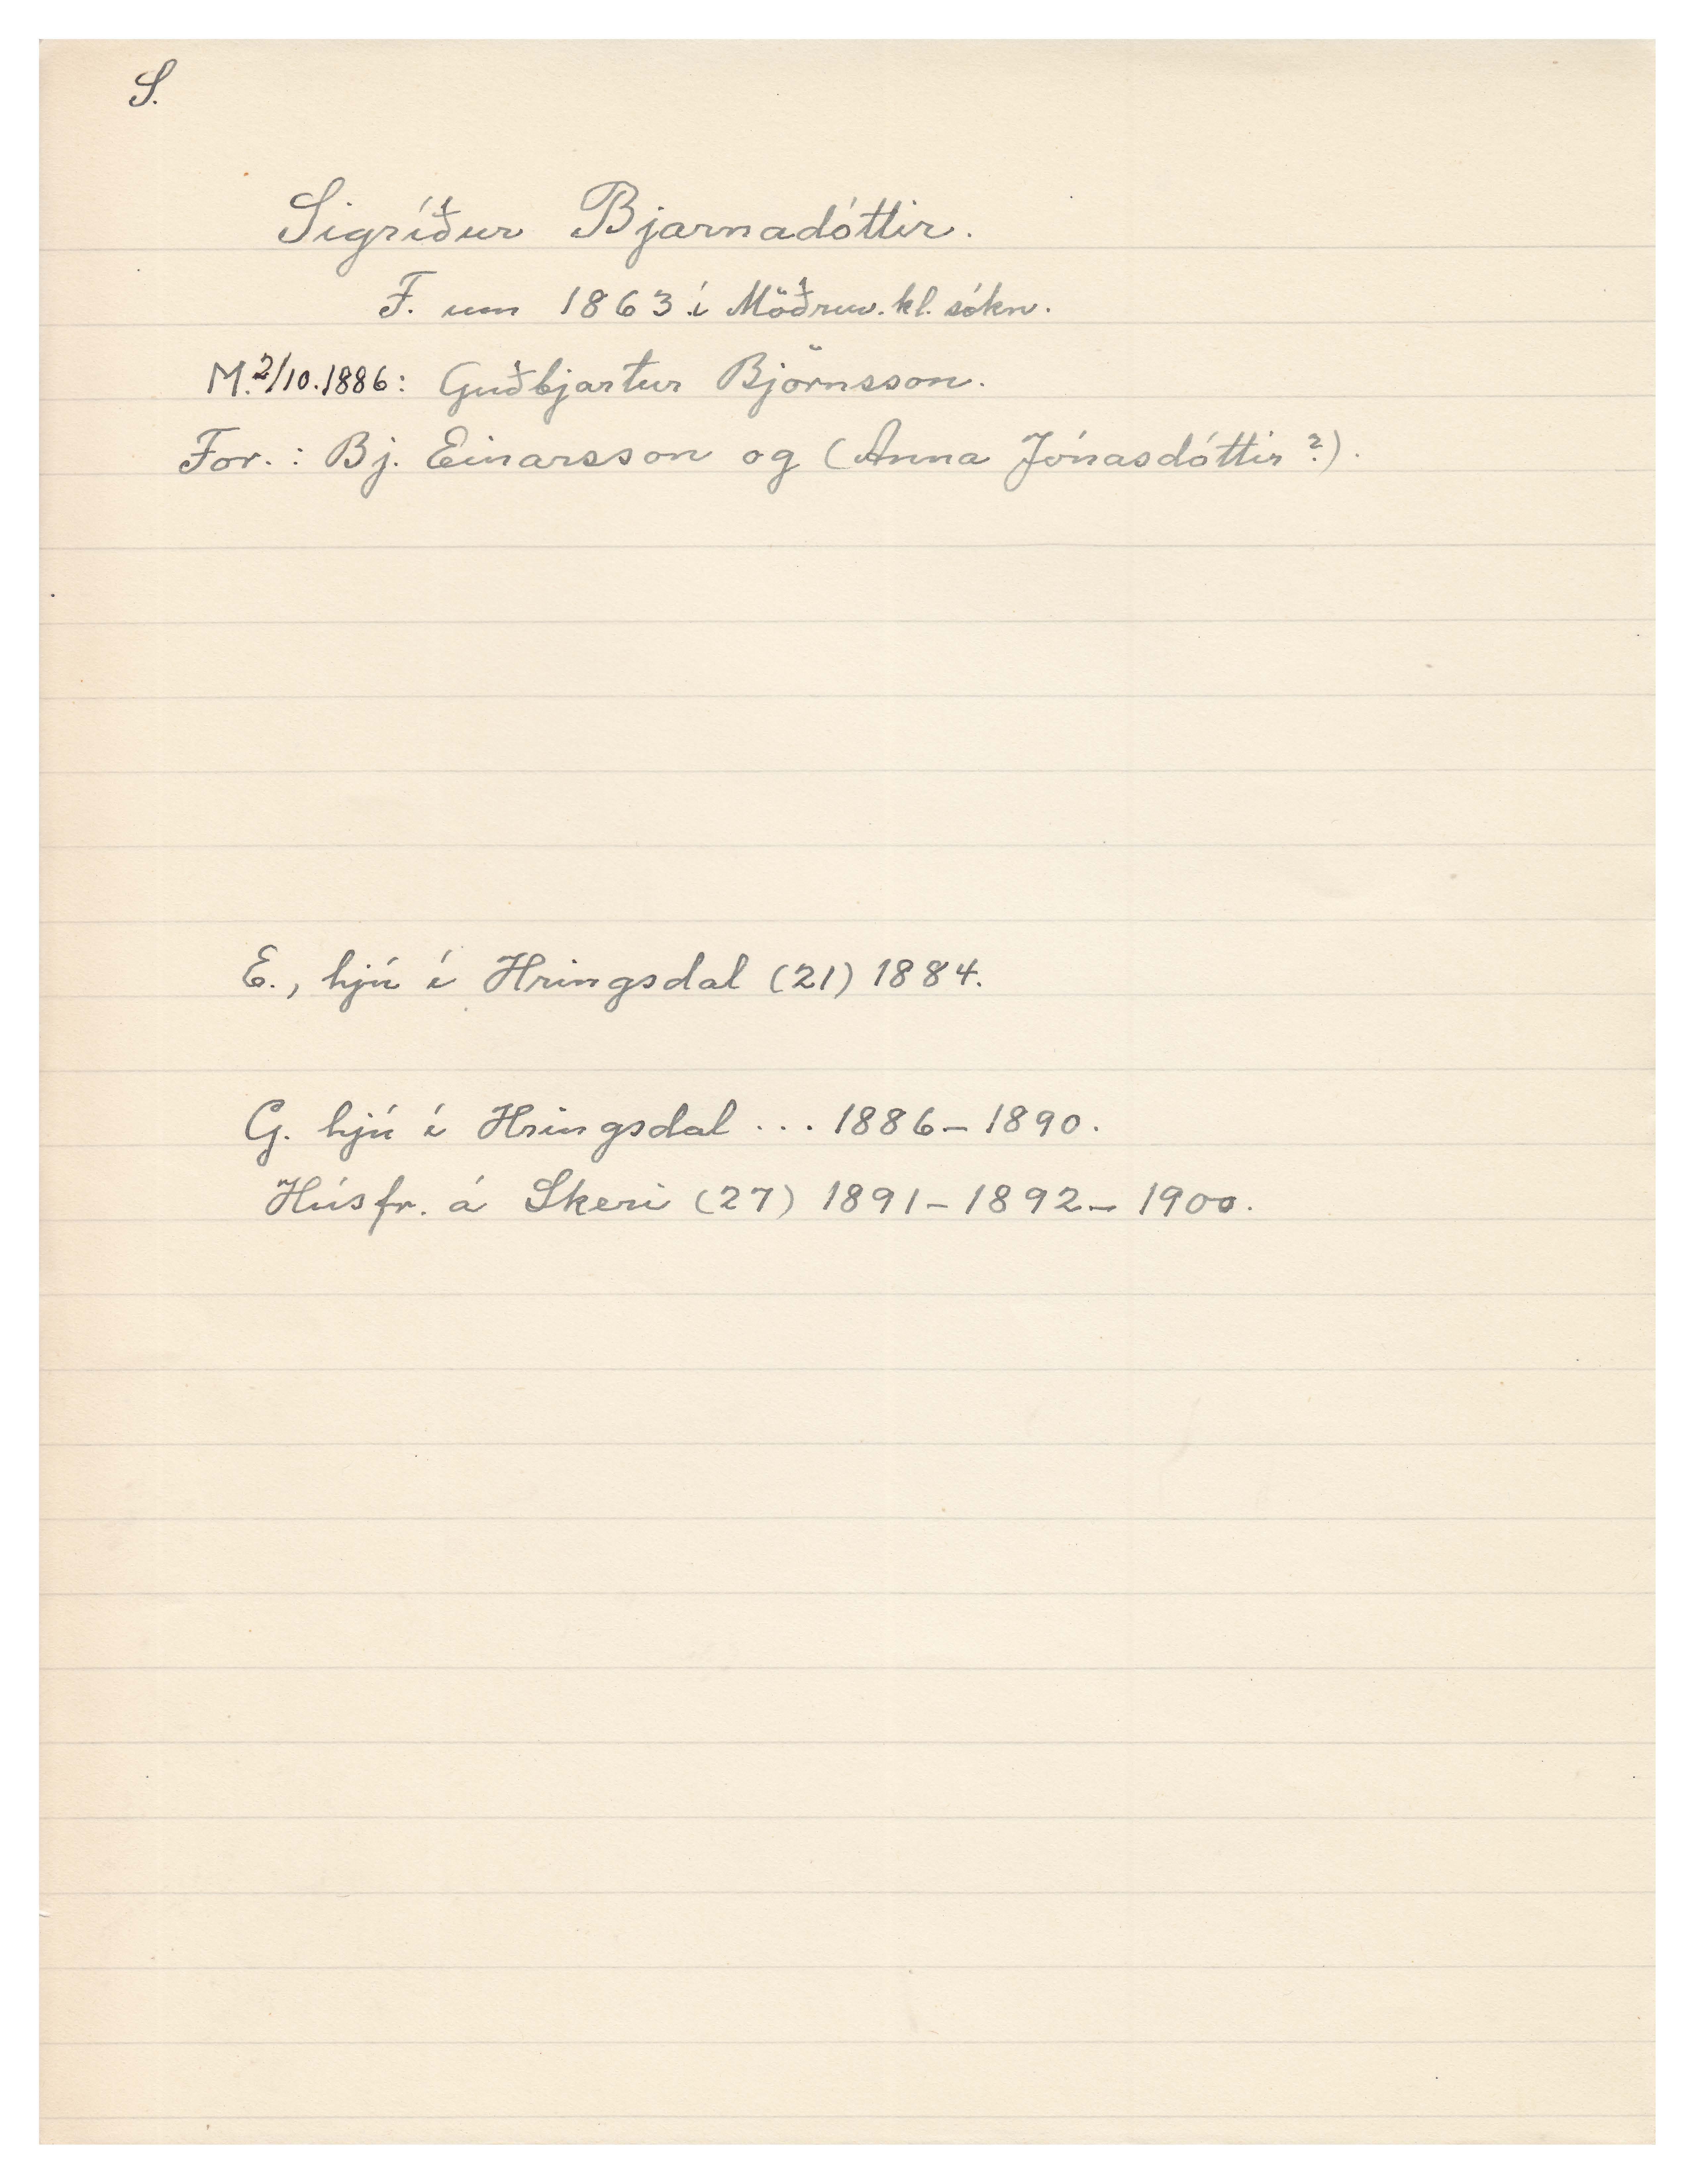 S.
Sigríður Bjarnadóttir.
F. um 1863 í Möðruv. kl. sókn.
M. 2/10. 1886: Guðbjartur Björnsson.
For.: Bj. Einarsson og (Anna Jónasdóttir?).
E., hjú í Hringsdal (21) 1884.
G. hjú í Hringsdal ... 1886-1890.
Húsfr. á Skeri (27) 1891-1892-1900.